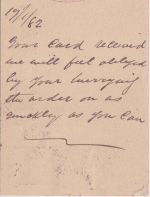 19/1/82
Your Card received
we will feel obliged
by your hurrying
the order on as
quickly as you Can